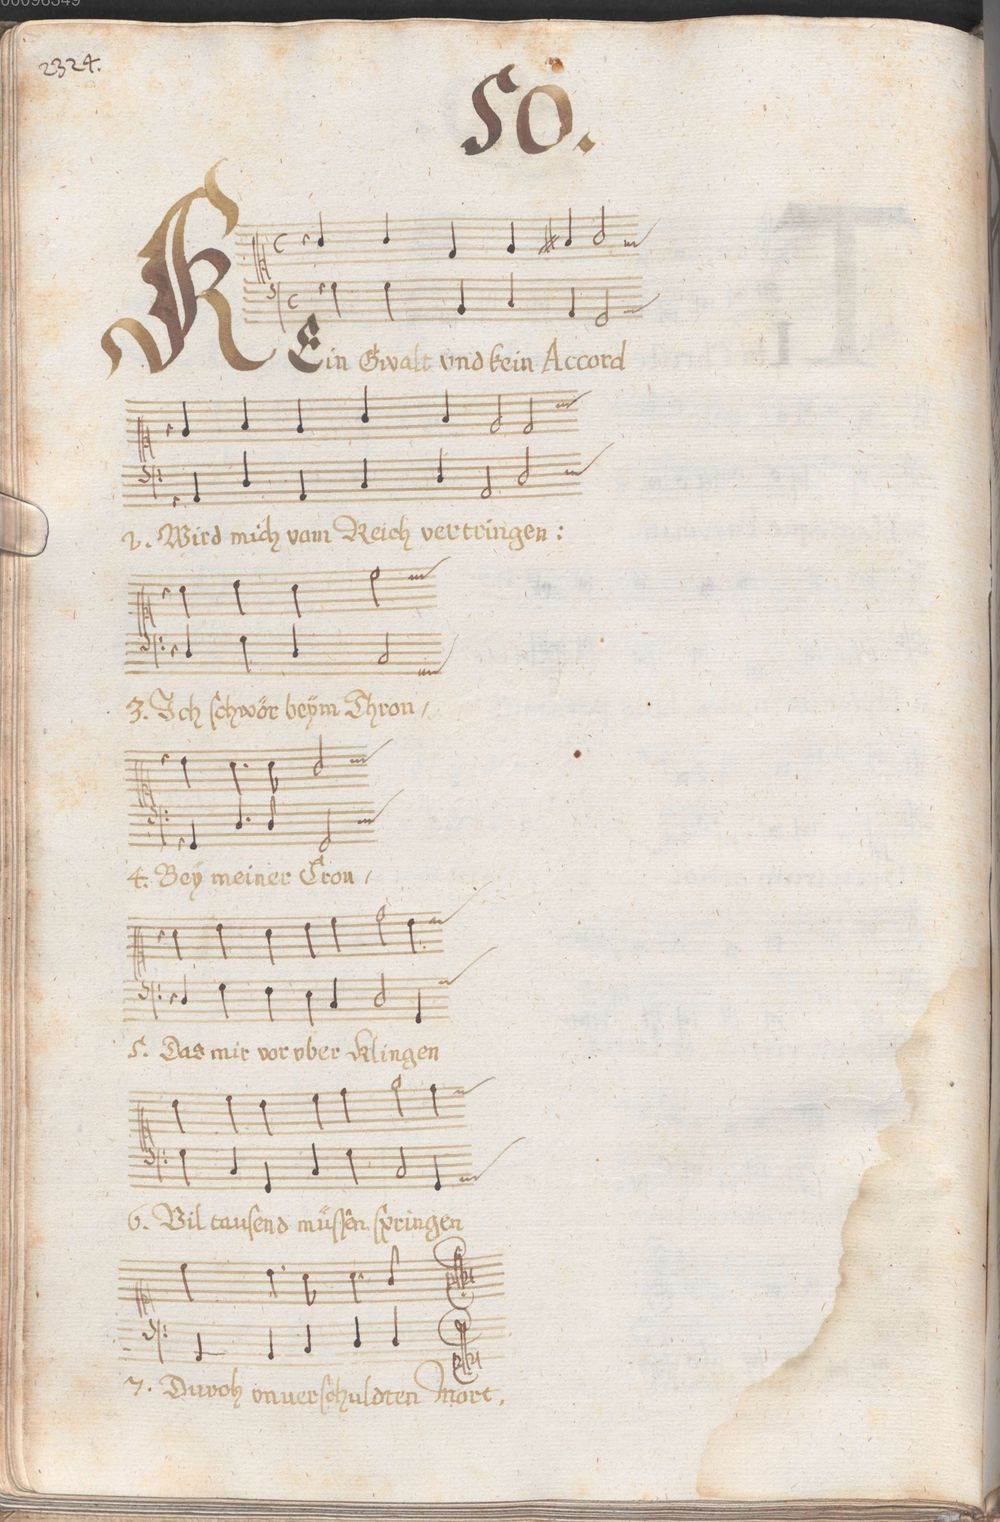 00096349
2324.
50.
KEin Gwalt vnd kein Accord
2. Wird mich vom Reich vertringen:
3. Ich schwör beÿm Thron /
4. Beÿ meiner Cron /
5. Das mir vor vber klingen
6. Vil tausend müssen springen
7. Durch vnuerschuldten Mort.